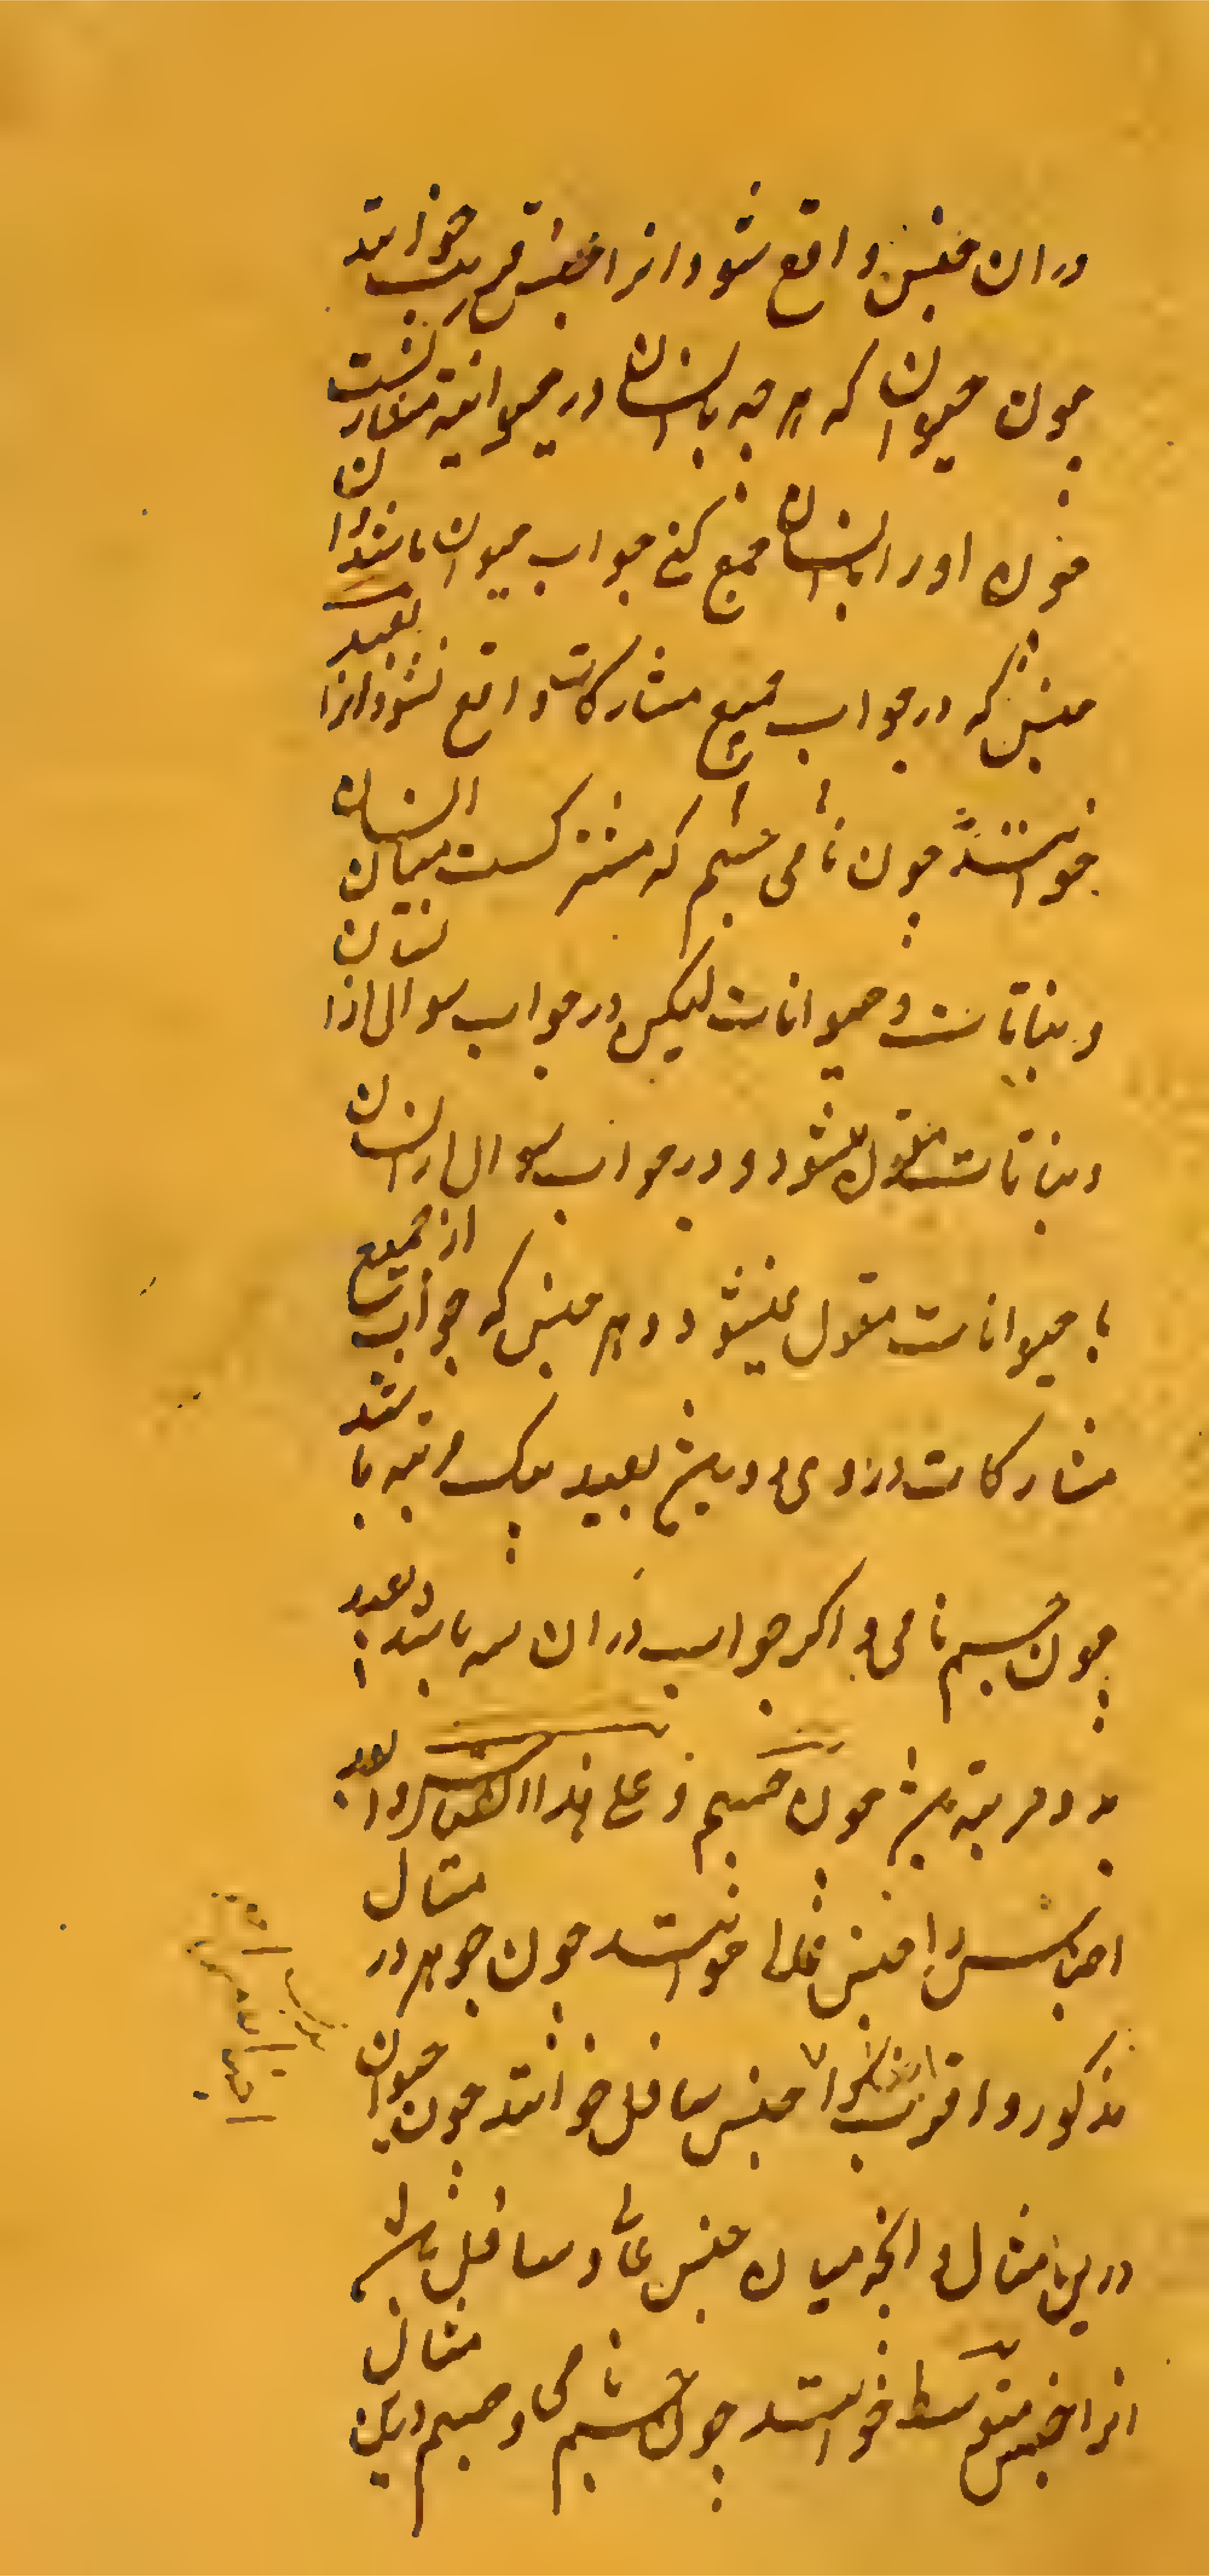 دران جنس واقع شود انرا جنس قریب خوانند
چون حیوان که هر چه با انسان در حیوانیه مشارکست
چون او را با انسان جمع کنی جواب حیوان باشد و ان
جنس که در جواب جمیع مشارکات واقع نشود انرا بعید
خوانند چون جسم نامی که مشترکست میان انسان
و نباتات و حیوانات لیکن در جواب سوال از انسان
و نباتات مقول میشود و در جواب سوال از انسان
با حیوانات مقول نمیشود و هر جنس که جواب از جمیع
مشارکات در وی دو باشد بعید بیک مرتبه باشد
چون جسم نامی و اگر جواب دران سه باشد بعید
بدو مرتبه باشد چون جسم و علی هذا القیاس و ابعد
اجناس را جنس عالی خوانند چون جوهر در مثال
مذکور و اقرب اجناس را جنس سافل خوانند چون حیوان
درین مثال و انچه میان جنس عالی و سافل باشد
انرا جنس متوسط خوانند چون جسم نامی و جسم درین مثال